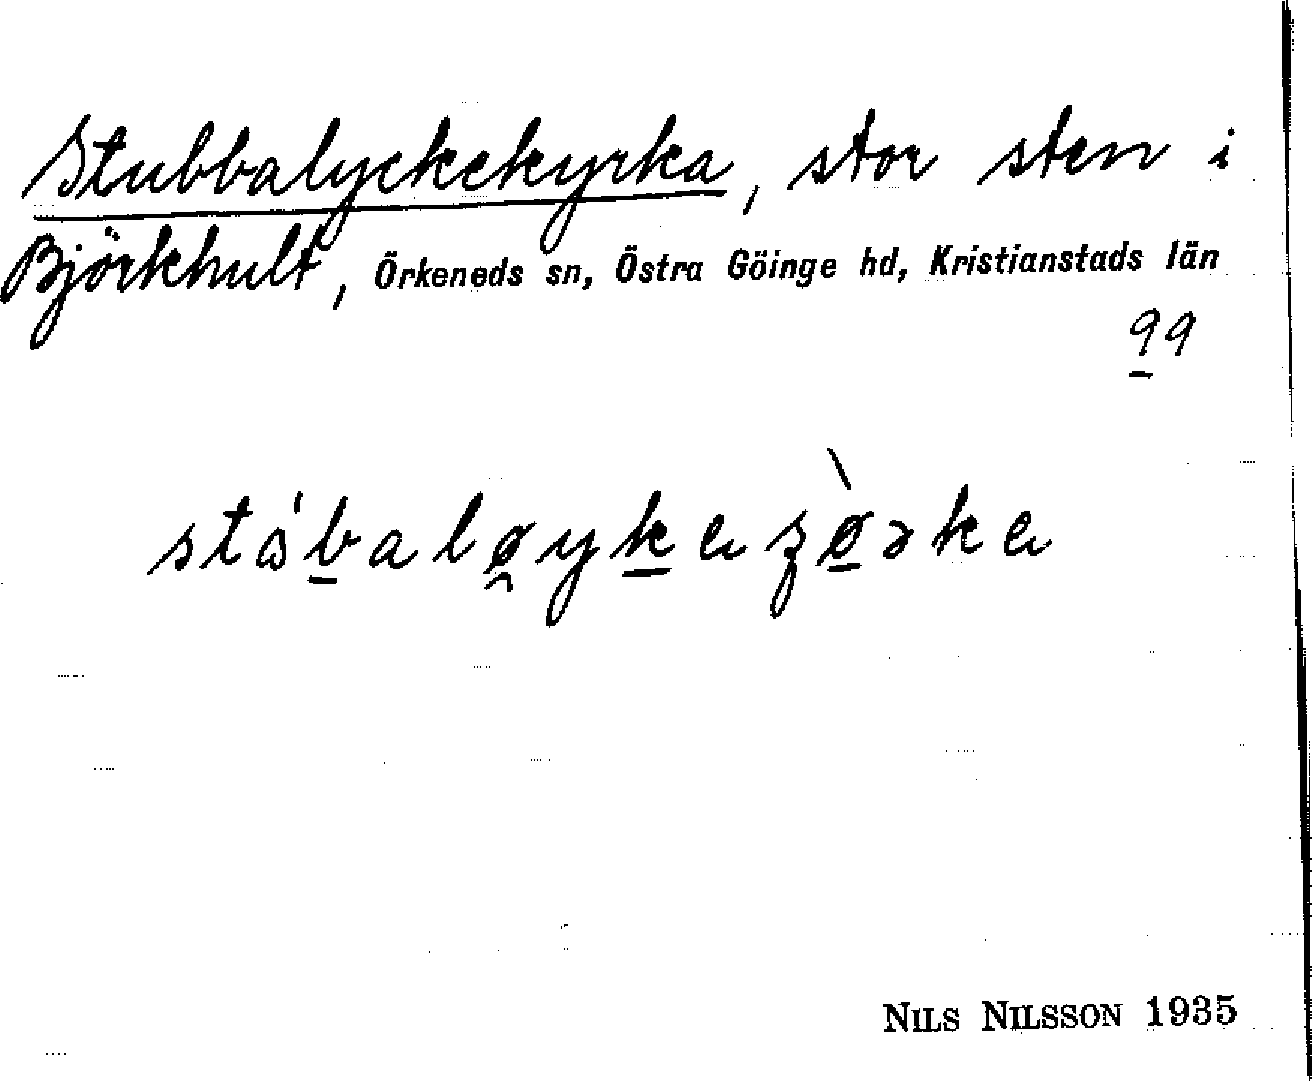 Stubbalyckekyrka, stor sten i
Björkhult, Örkeneds sn, Östra Göinge hd, Kristianstads län
99
NILS NILSSON 1935